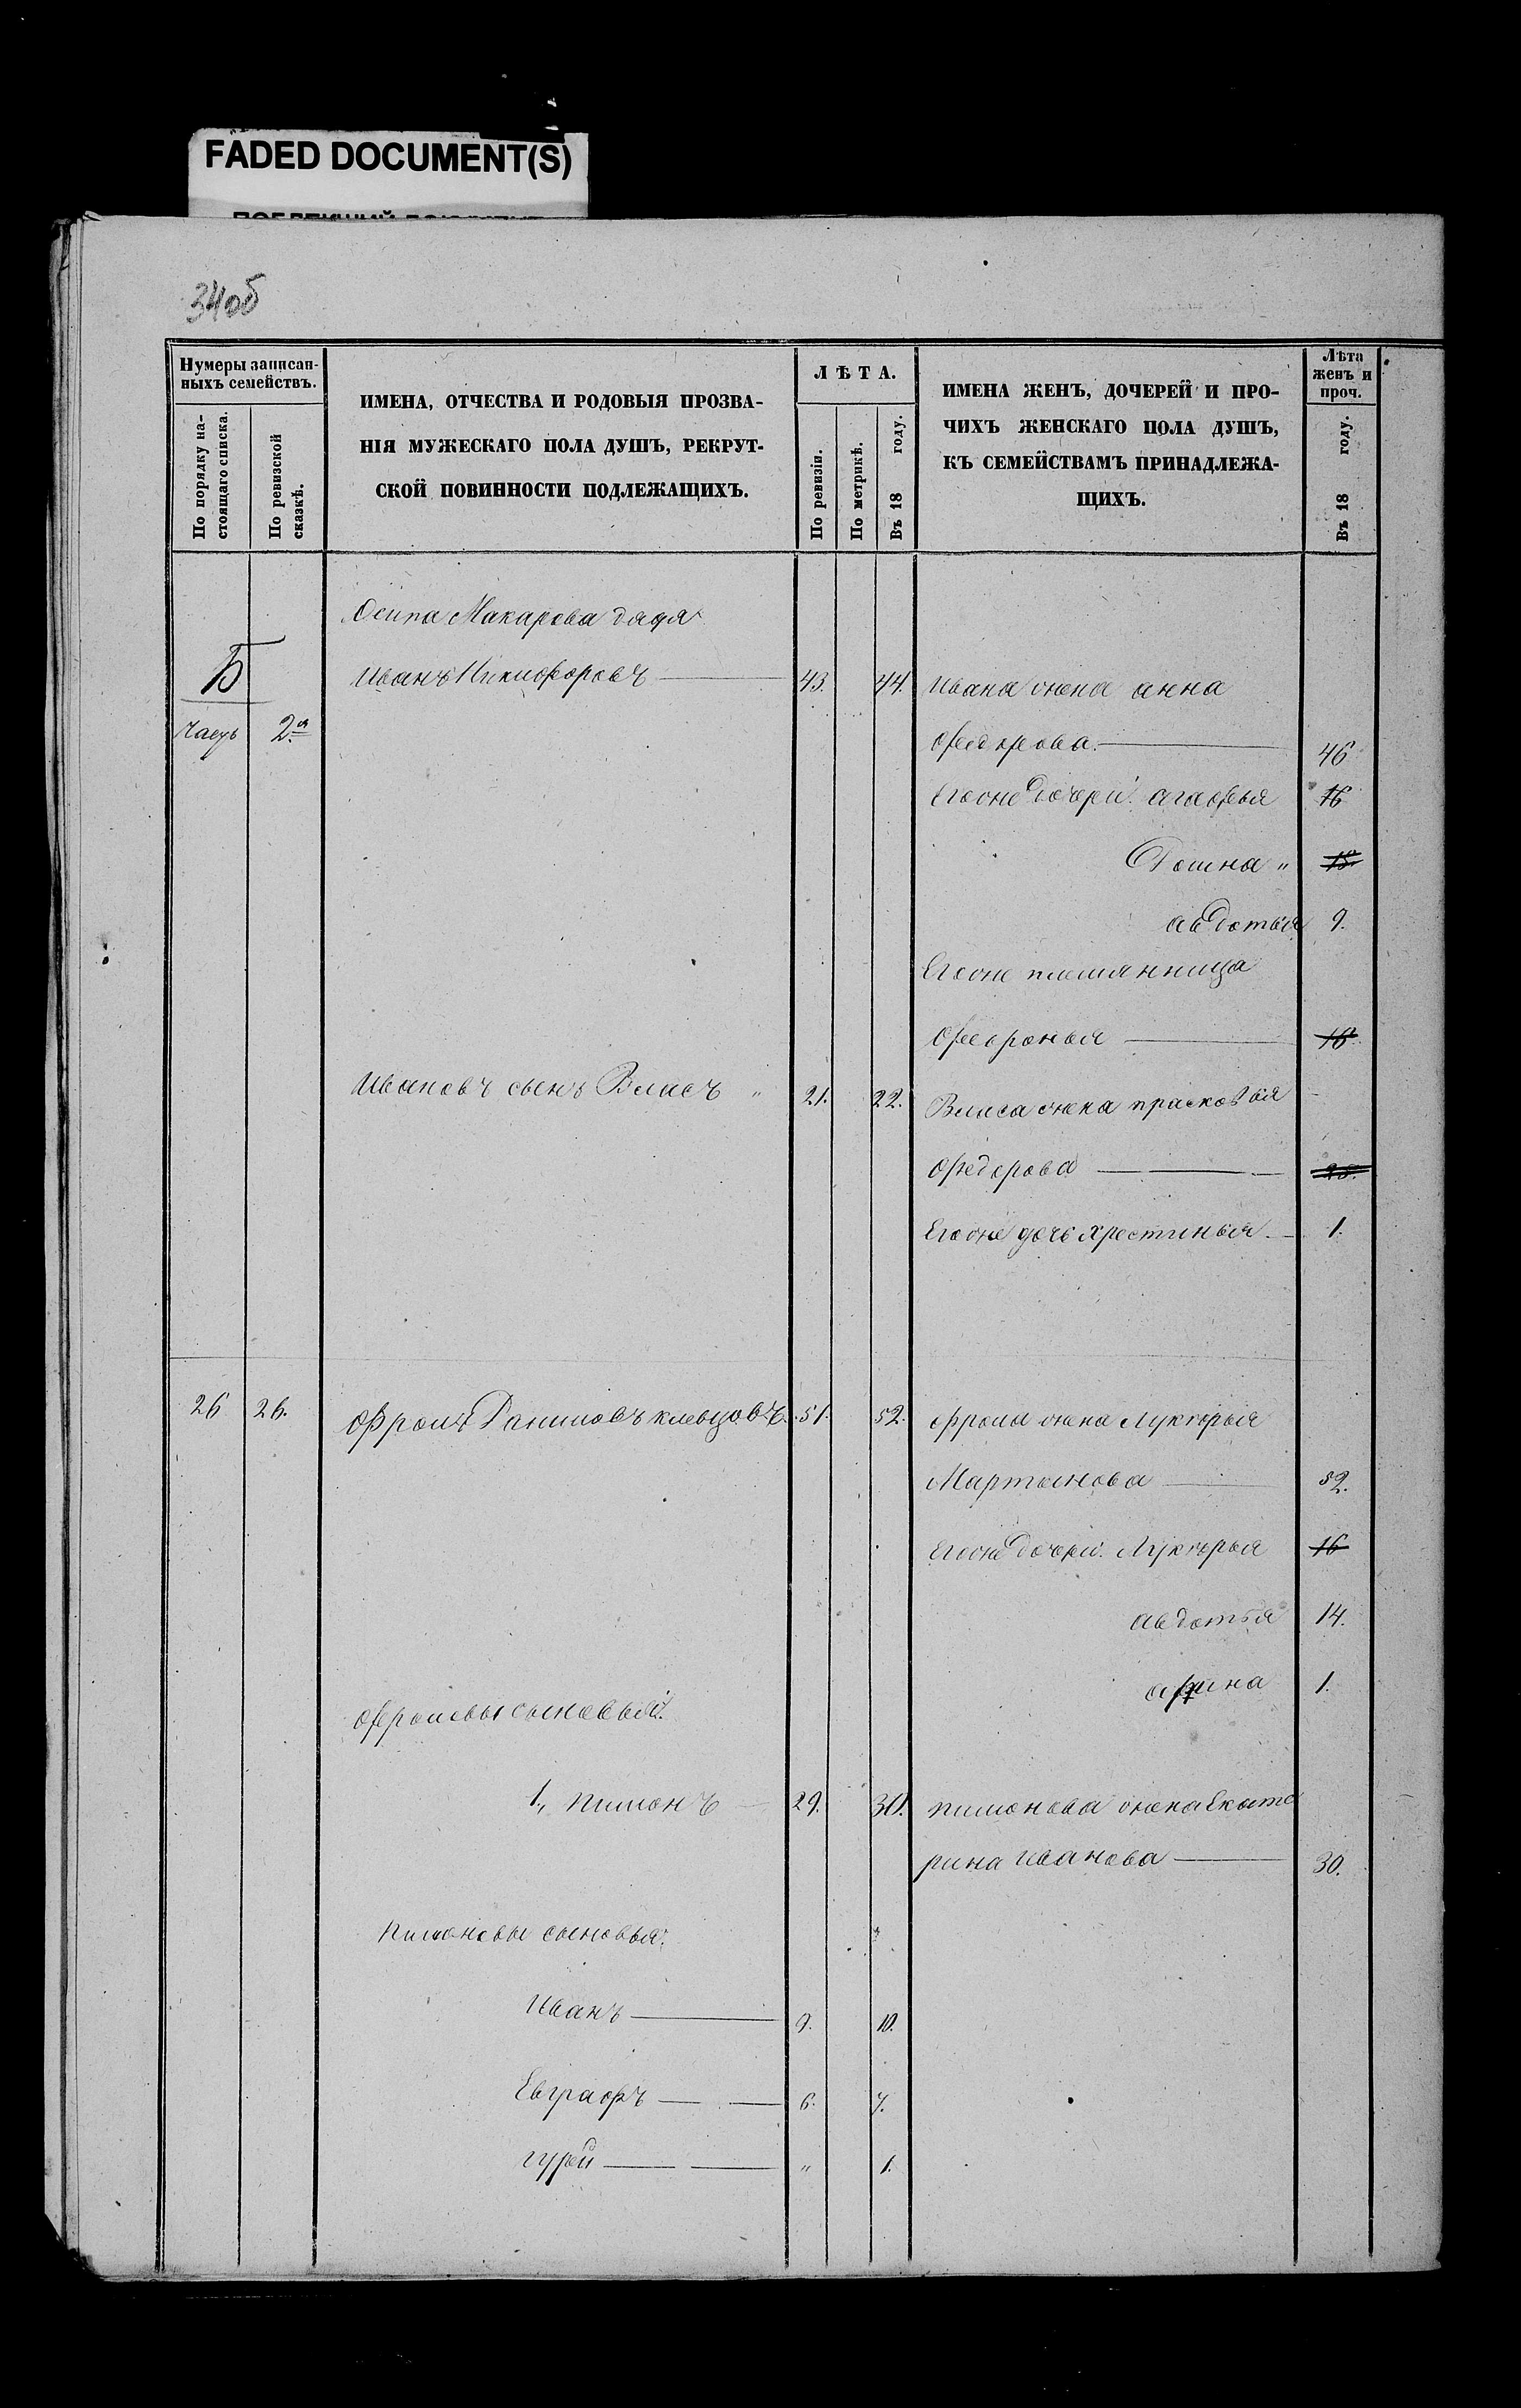 FADED DOCUMENT(S)
34об
Нумеры записан-
ныхъ семействъ.
По порядку на-
стоящаго списка.
По ревизской
сказкѣ.
ИМЕНА, ОТЧЕСТВА И РОДОВЫЯ ПРОЗВА-
НІЯ МУЖЕСКАГО ПОЛА ДУШЪ, РЕКРУТ-
СКОЙ ПОВИННОСТИ ПОДЛЕЖАЩИХЪ.
ЛѢТА.
По ревизіи.
По метрикѣ.
Въ 18 году.
ИМЕНА ЖЕНЪ, ДОЧЕРЕЙ И ПРО-
ЧИХЪ ЖЕНСКАГО ПОЛА ДУШЪ,
КЪ СЕМЕЙСТВАМЪ ПРИНАДЛЕЖА-
ЩИХЪ.
Лѣта
женъ и
проч.
Въ 18 году.
Осипа Макарова дядя
Б Иванъ Никифоровъ 43. 44. Ивана жена анна
часть 2я Федорова. 46
Егоже дочери: агафья 16
Домна " 15.
авдотья 9.
Егоже племянница
Февронья 18.
Ивановъ сынъ Власъ " 21. 22. Власа жена прасковья
Федорова 28.
Егоже дочь Хрестинья 1.
26 26. Фролъ Даниловъ клевцовъ. 51. 52. Фрола жена Лукерья
Мартынова 52.
Егоже дочери: Лукерья 16
авдотья 14.
арина 1.
Фроловы сыновья:
1., пимонъ 29. 30. пимонова жена Екате
рина Иванова 30.
Пимоновы сыновья:
Иванъ 9. 10.
Евграфъ 6. 7.
гурей " 1.